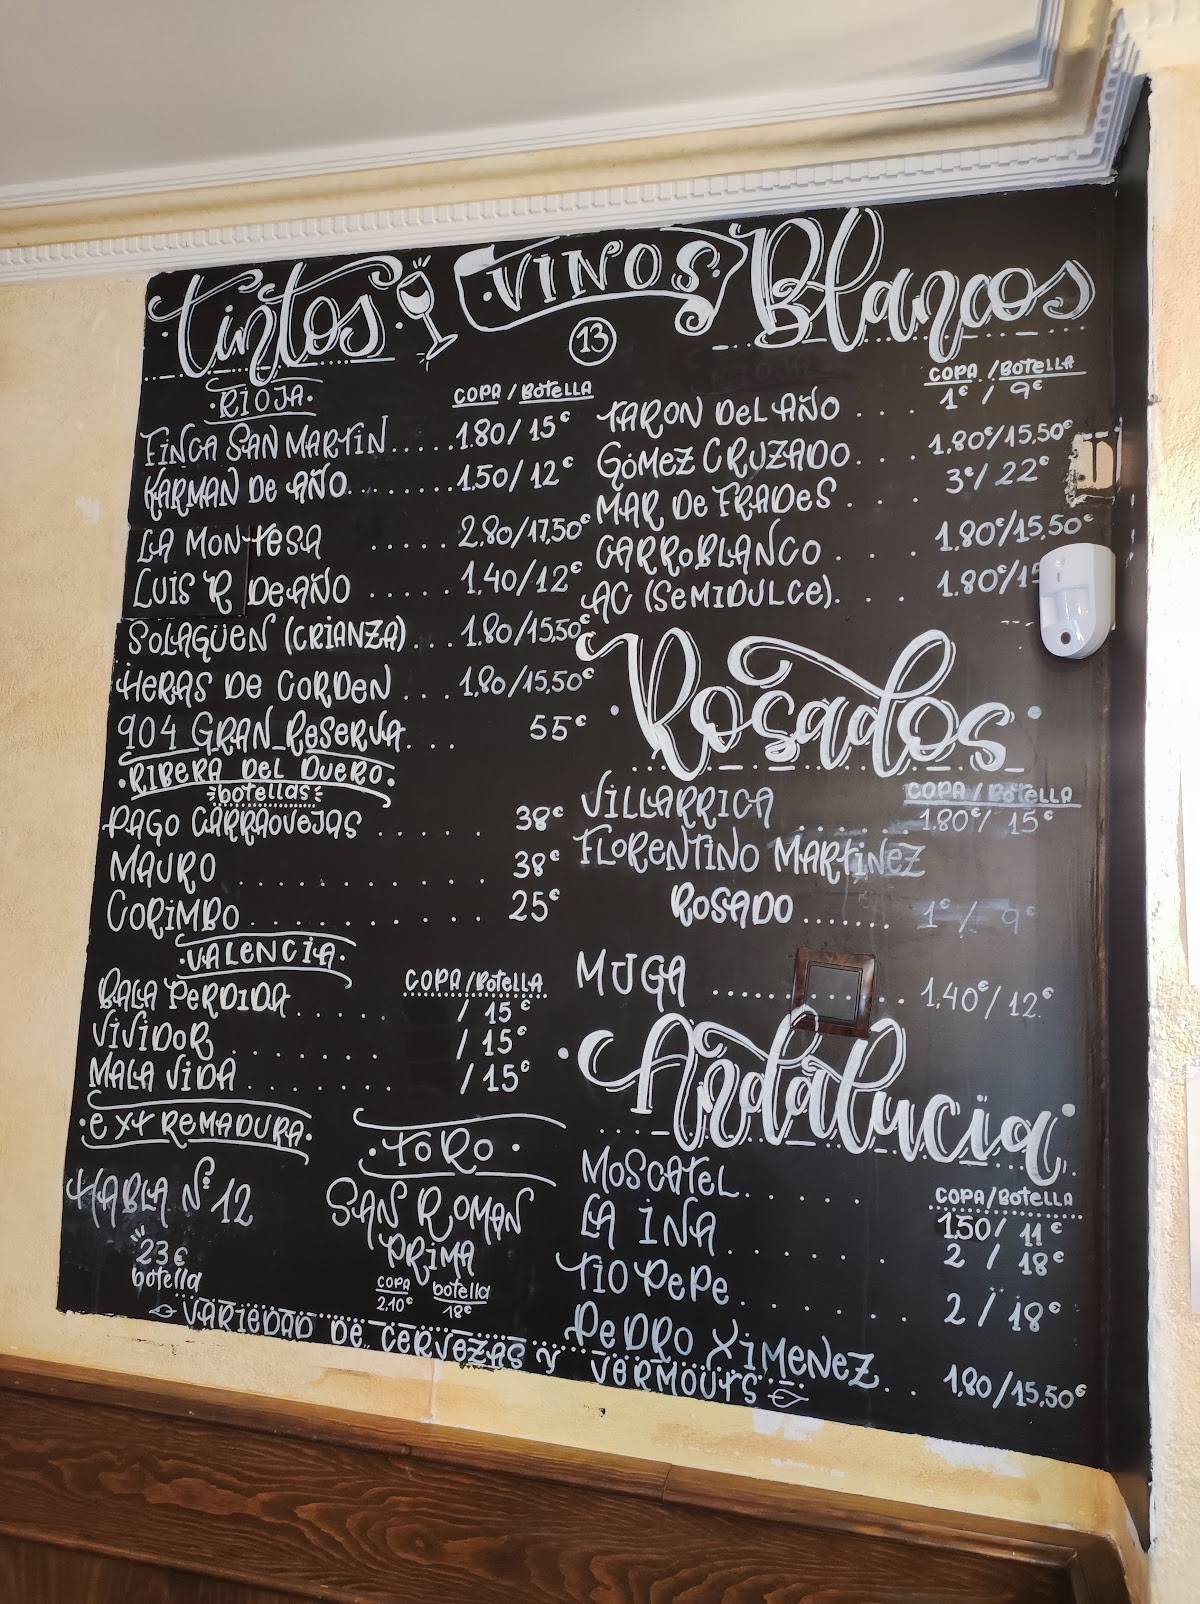 Tintos
·VINOS·
Blancos
13
·RIOJA·
COPA / Botella
FINCA SAN MARTIN.....1.80/15€
KARMAN De AÑO.......1.50/12€
LA MONTESA .....2.80/17,50€
LUIS R DE AÑO .....1.40/12€
SOLAGUEN (CRIANZA)...1.80/15,50€
HERAS DE CORDEN...1,80/15,50€
904 GRAN RESERVA... 55€
·RIBERA DEL DUERO·
botellas
PAGO CARRAOVEJAS ...... 38€
MAURO ............ 38€
CORIMBO........... 25€
·VALENCIA·
COPA/Botella
BALA PERDIDA..... / 15€
VIVIDOR ........ / 15€
MALA VIDA........ / 15€
·EXTREMADURA·
HABLA Nº 12
23€
botella
·TORO·
SAN ROMAN
PRIMA
COPA botella
2.10€ 18€
COPA /Botella
TARON DeL AÑO .... 1€ / 9€
GÓMEZ CRUZADO... 1.80€/15.50€
MAR De FRADeS .... 3€/ 22€
CARROBLANCO .... 1.80€/15,50€
AC (SeMIDULCe).... 1.80€/15
·Rosados·
COPA / Botella
VILLARRICA ....... 1.80€/ 15€
FLORENTINO MARTINEZ
ROSADO...... 1€ / 9€
MUGA ............ 1,40€/12€
·Andalucia·
COPA/Botella
MOSCATEL...... 1.50/ 11€
LA INA ....... 2 / 18€
TIO PePe....... 2 / 18€
PEDRO XIMENEZ.. 1,80/15,50€
VARIEDAD DE CERVEZAS Y VERMOUTS